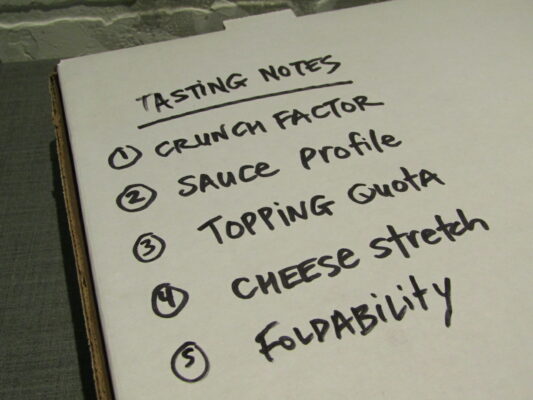 TASTING NOTES
1 CRUNCH FACTOR
2 SAUCE Profile
3 TOPPING QUOTA
4 CHEESE stretch
5 FOLDABILITY